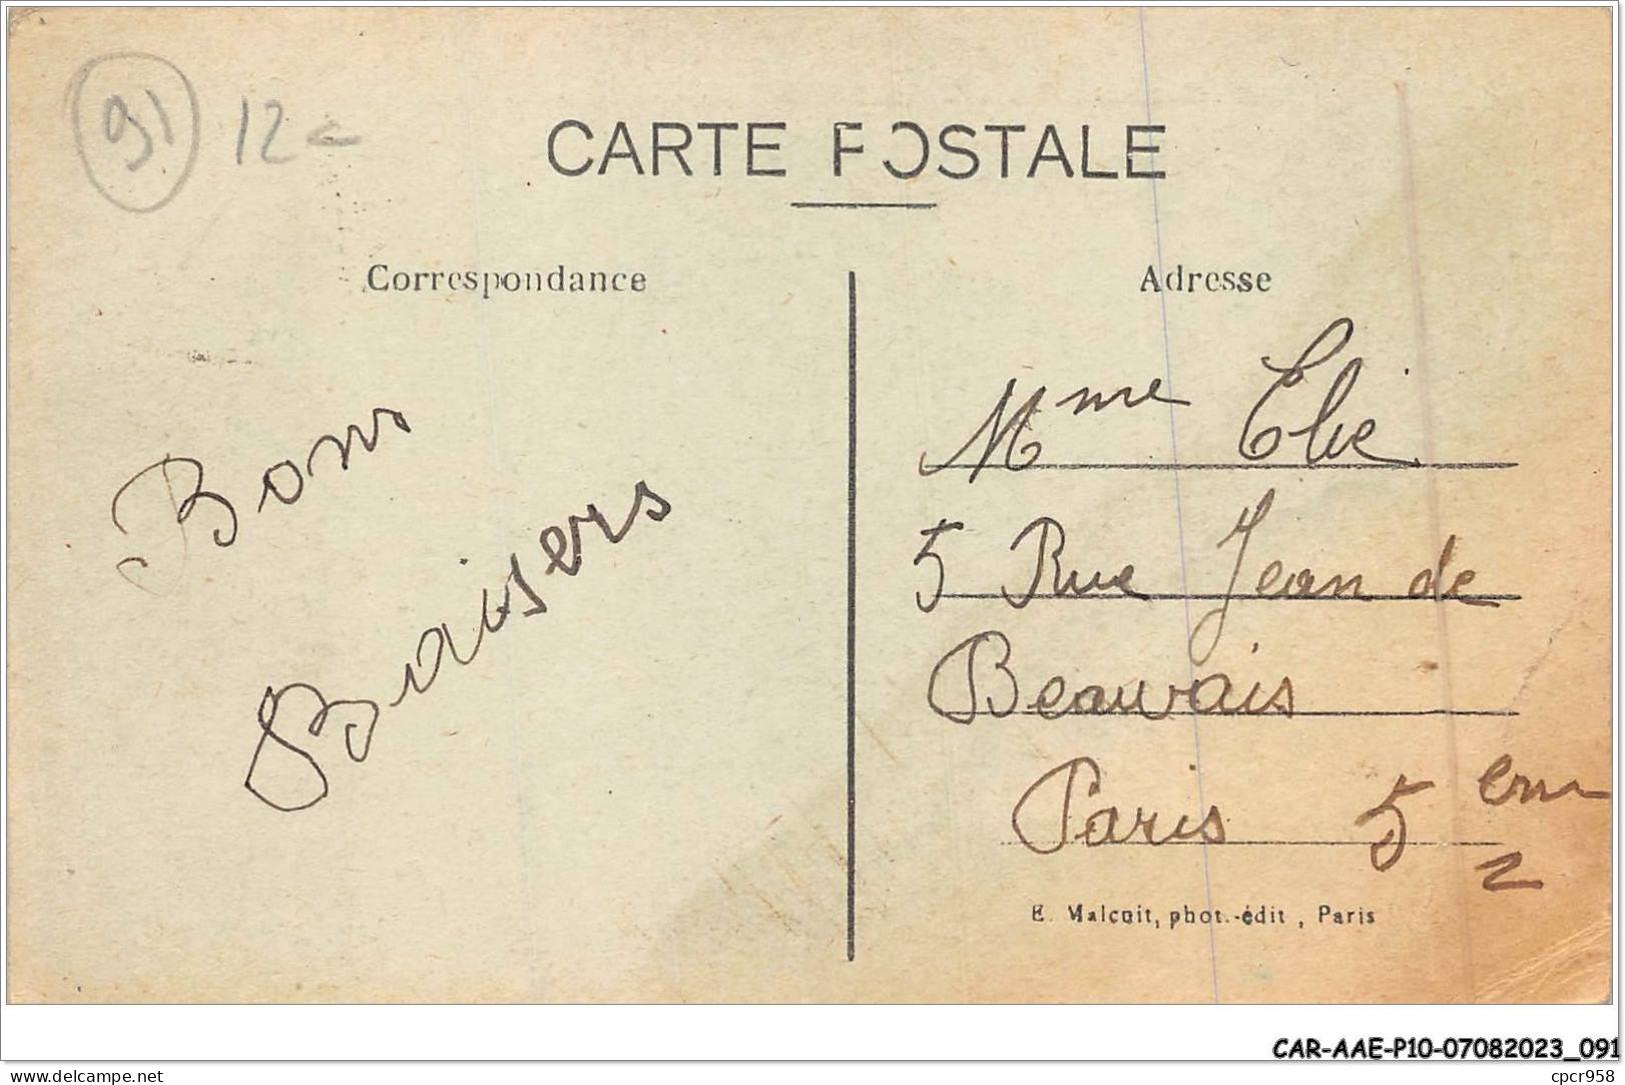 91 12
CARTE POSTALE
Correspondance
Adresse
Bons
Baisers
Mme Elie
5 Rue Jean de
Beauvais
Paris 5em
E. Malcuit, phot.-édit, Paris
CAR-AAE-P10-07082023_091
delcampe.net
cpcr958